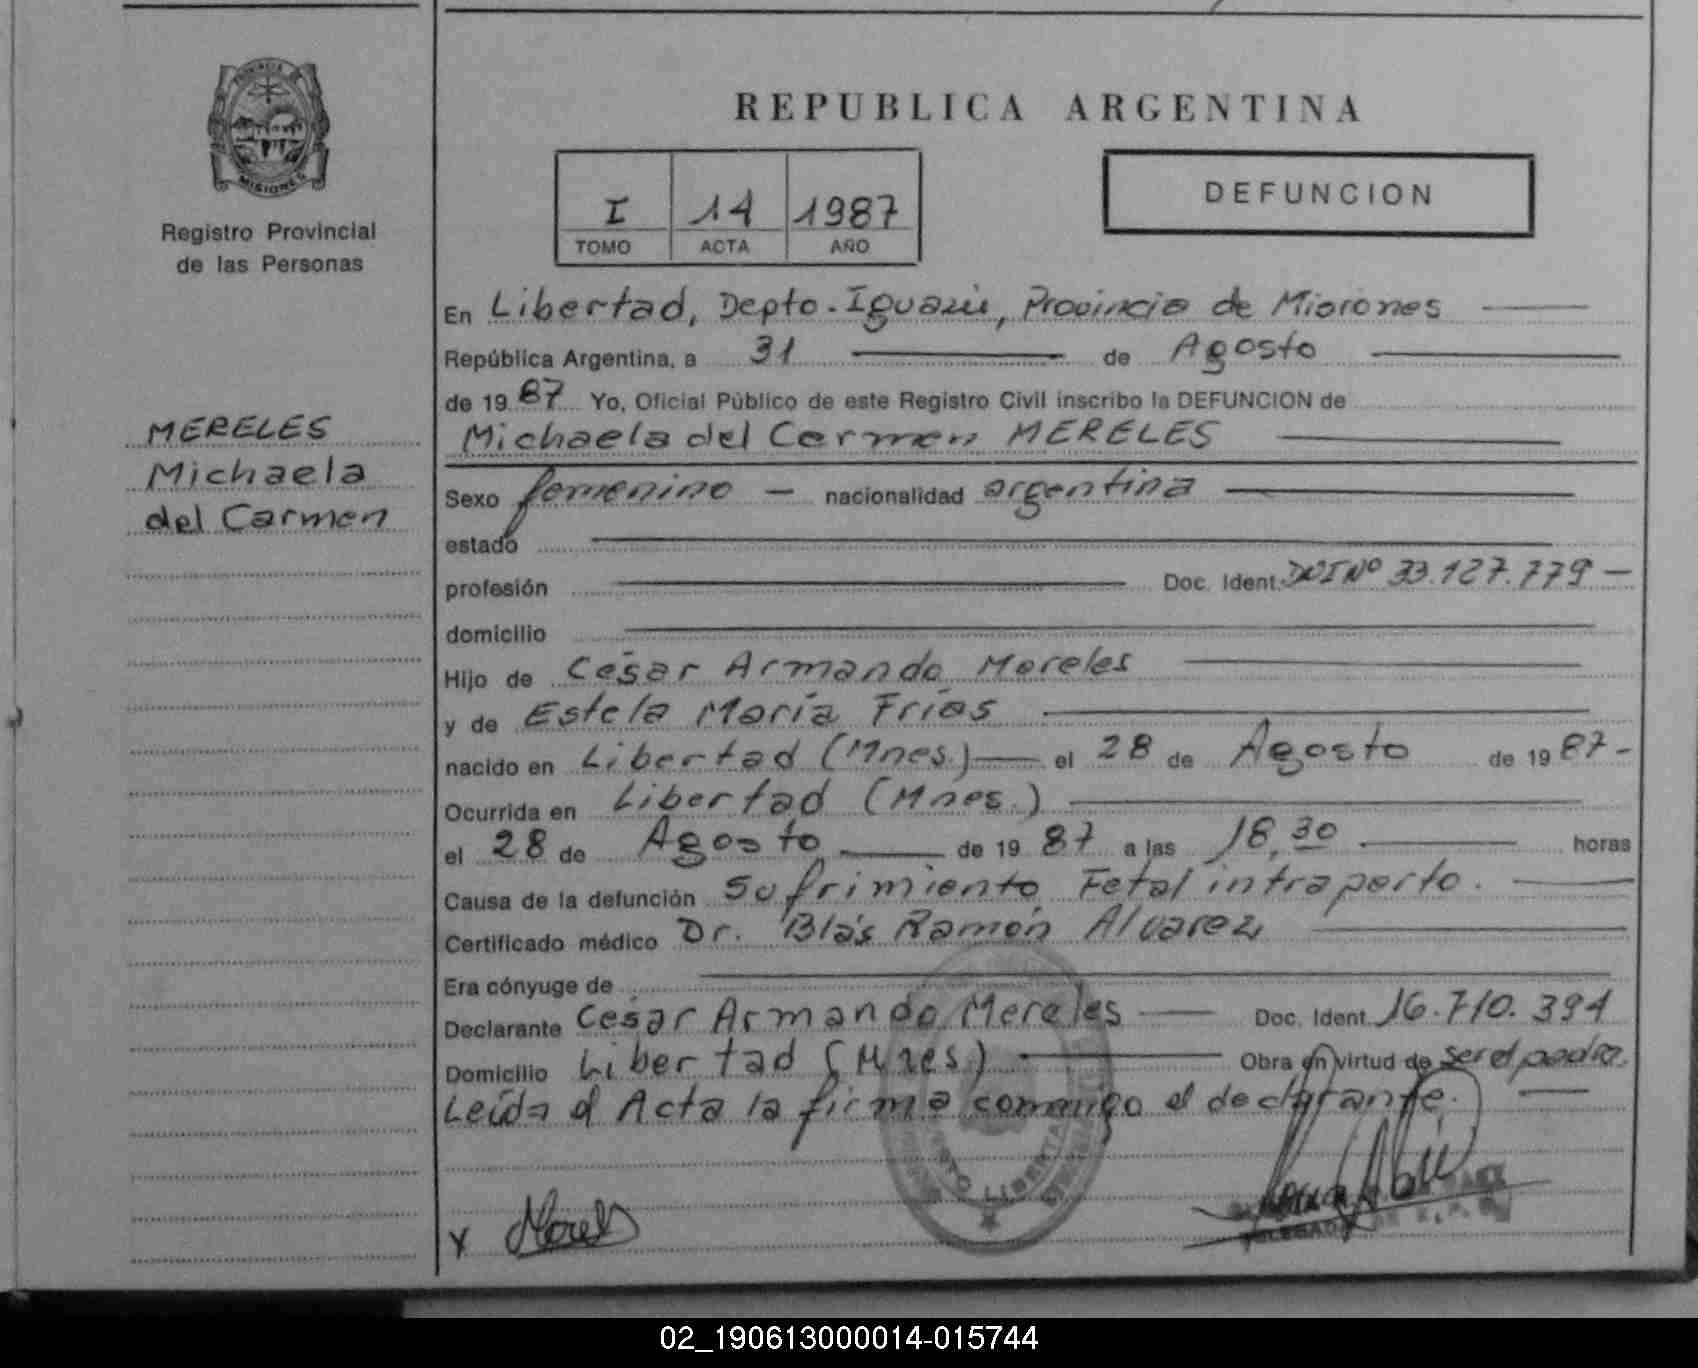 PROVINCIA DE
MISIONES
Registro Provincial
de las Personas
MERELES
Michaela
del Carmen
REPUBLICA ARGENTINA
I 14 1987
TOMO ACTA AÑO
DEFUNCION
En Libertad, Depto. Iguazú, Provincia de Misiones
República Argentina, a 31 de Agosto
de 1987 Yo, Oficial Público de este Registro Civil inscribo la DEFUNCION de
Michaela del Carmen MERELES
Sexo femenino - nacionalidad argentina
estado
profesión Doc. Ident. DNI Nº 33.127.779 -
domicilio
Hijo de César Armando Mereles
y de Estela María Frías
nacido en Libertad (Mnes.) el 28 de Agosto de 1987-
Ocurrida en Libertad (Mnes.)
el 28 de Agosto de 1987 a las 18,30 horas
Causa de la defunción Sufrimiento Fetal intraparto.
Certificado médico Dr. Blás Ramón Alvarez
Era cónyuge de
Declarante César Armando Mereles Doc. Ident. 16.710.394
Domicilio Libertad (Mnes) Obra en virtud de ser el padre.
Leída el Acta la firma conmigo el declarante.
LIBERTAD
X Merels
02_190613000014-015744